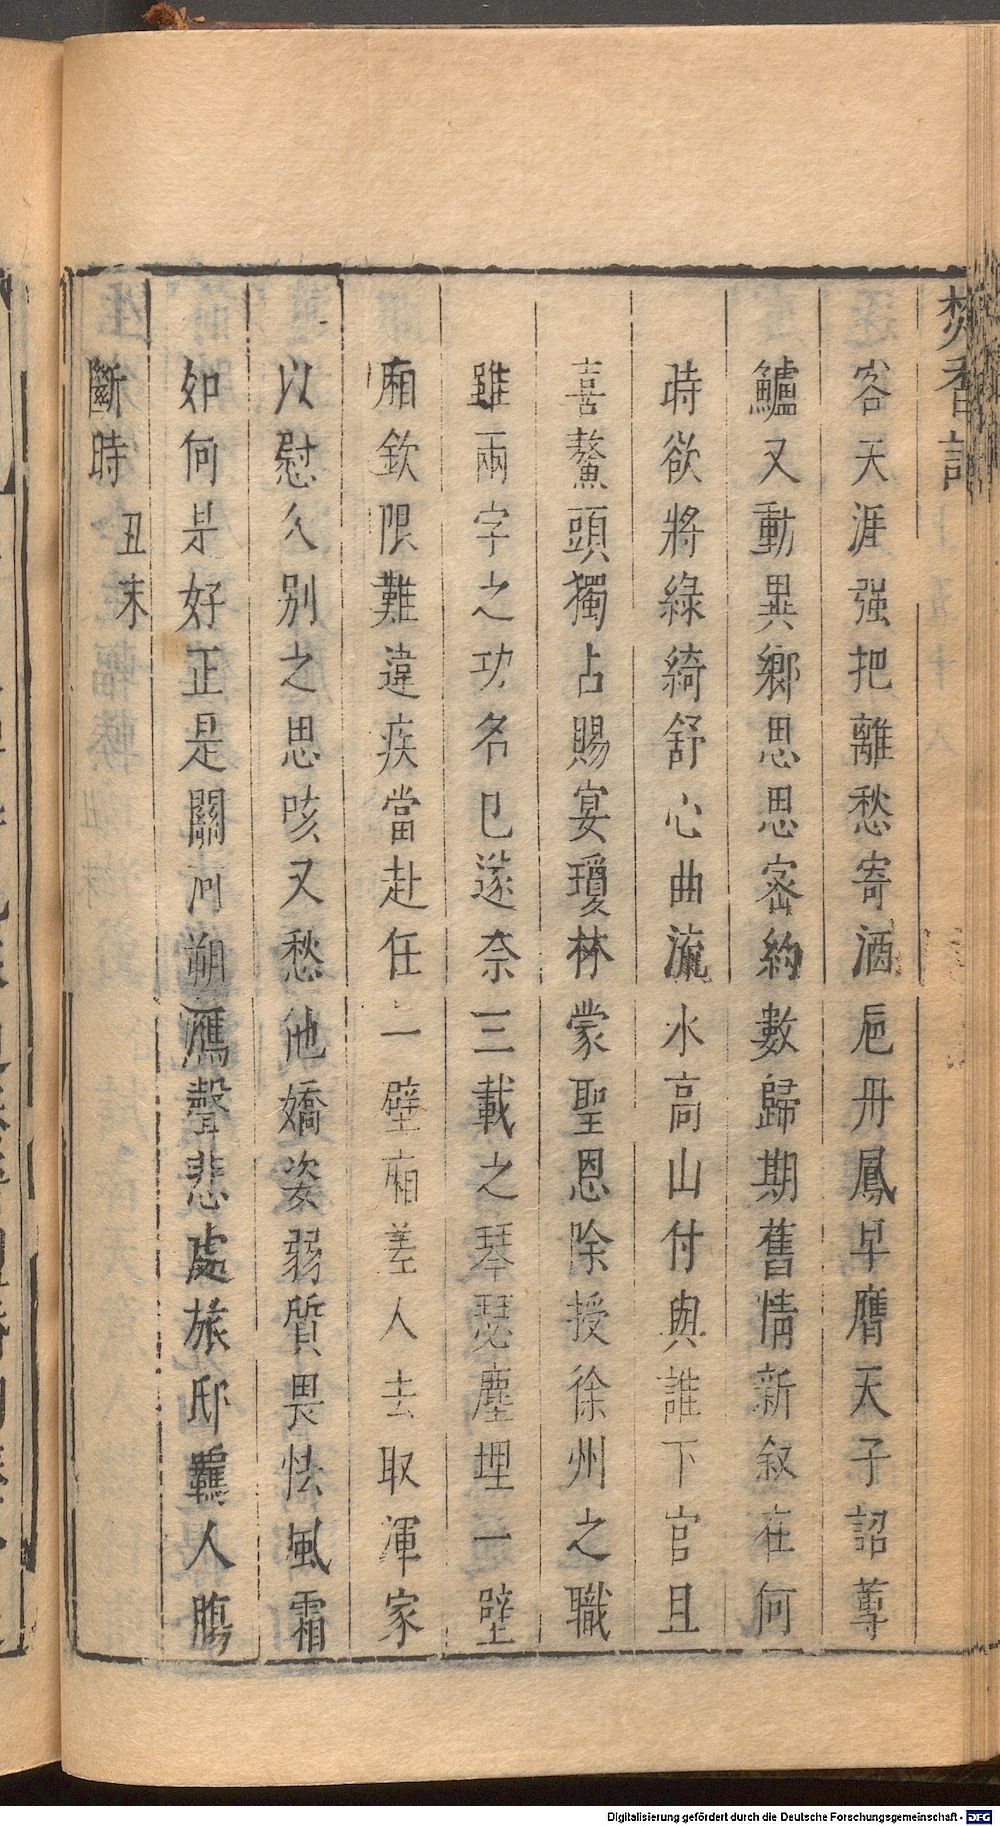 焚香記
客天涯强把離愁寄酒巵丹鳳早膺天子詔蓴
鱸又動異鄉思思密約數歸期舊情新叙在何
時欲將綠綺舒心曲流水高山付與誰下官且
喜鰲頭獨占賜宴瓊林蒙聖恩除授徐州之職
雖兩字之功名已遂奈三載之琴瑟塵埋一壁
廂欽限難違疾當赴任一壁廂差人去取渾家
以慰久別之思咳又愁他嬌姿弱質畏怯風霜
如何是好正是關河朔鴈聲悲處旅邸羈人腸
斷時 丑末
Digitalisierung gefördert durch die Deutsche Forschungsgemeinschaft - DFG